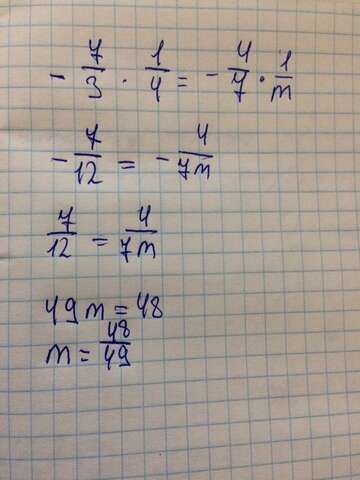 - 7/3 · 1/4 = - 4/7 · 1/m
- 7/12 = - 4/7m
7/12 = 4/7m
49m = 48
m = 48/49